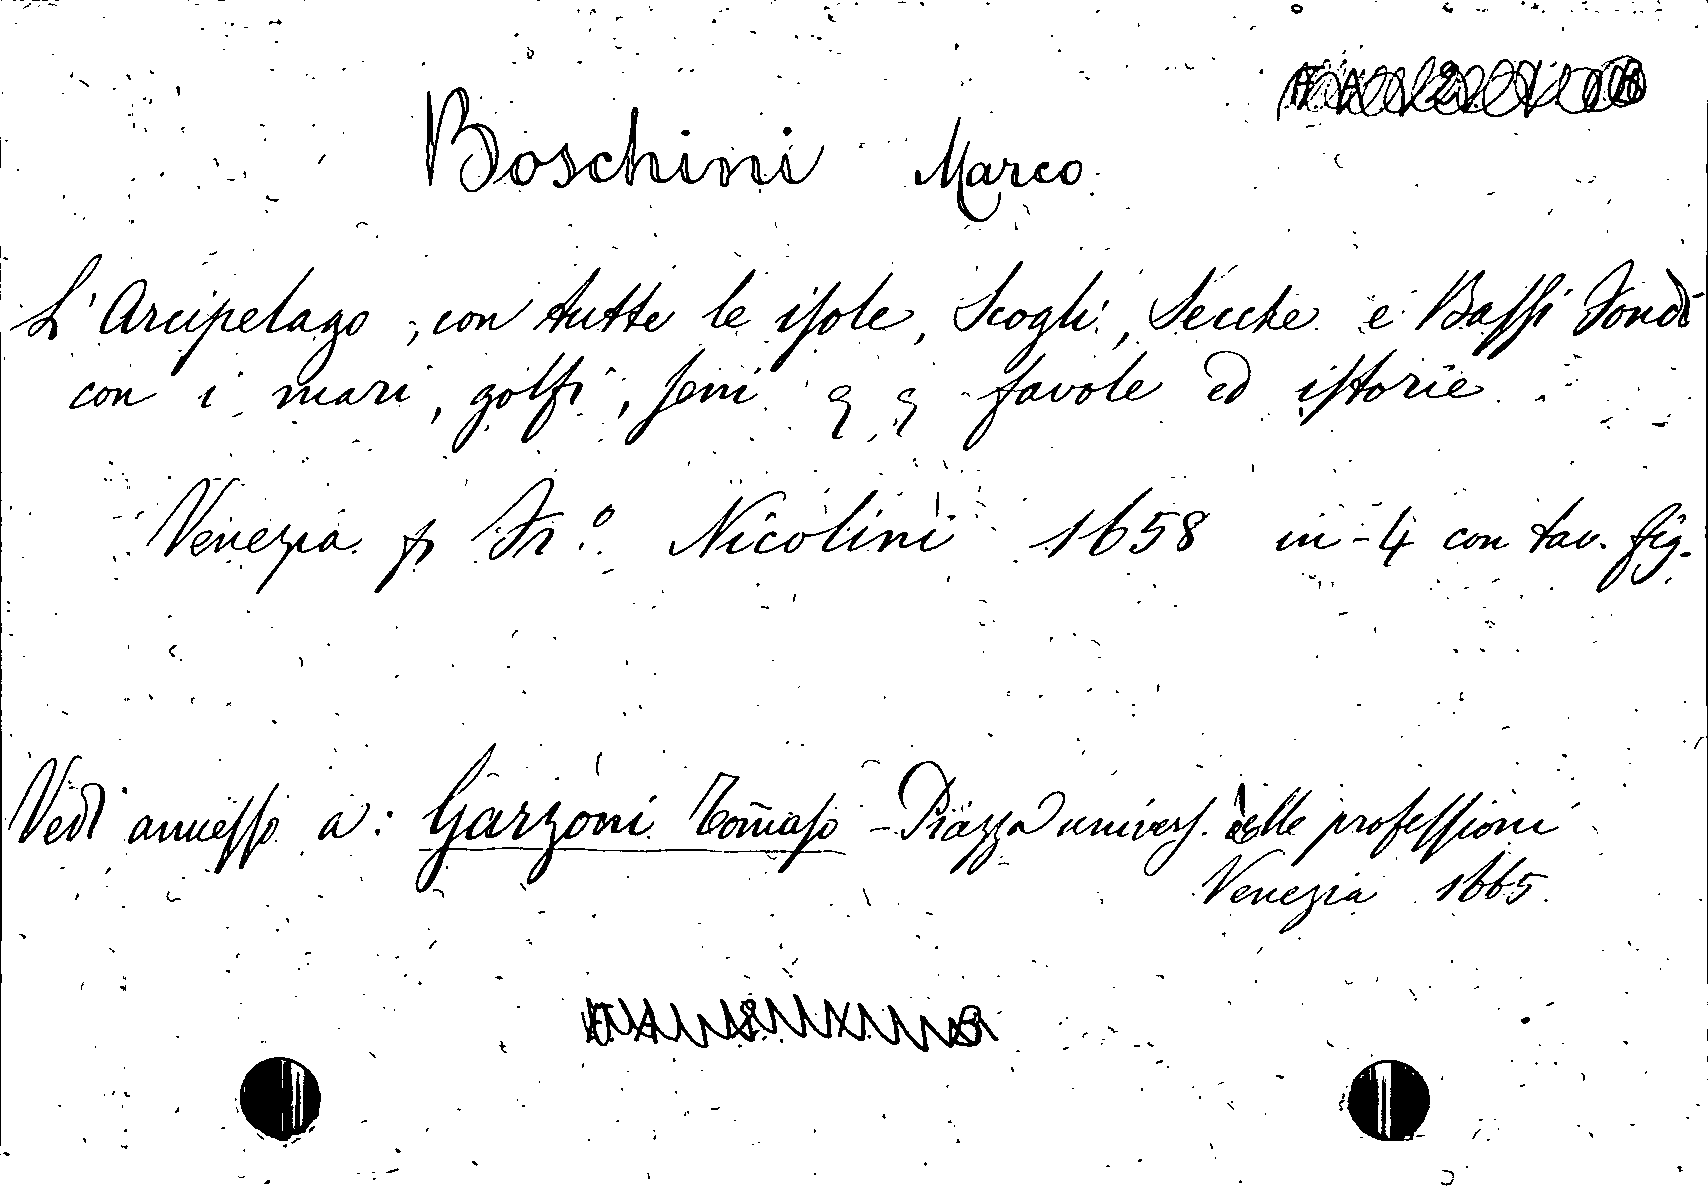 Boschini Marco
L'Arcipelago, con tutte le isole, Scogli, Secche e Bassi Fondi
con i mari, golfi, seni &c &c favole ed istorie
Venezia p Fr.º Nicolini 1658 in-4 con tav. fig.
Vedi annesso a: Garzoni Tom̃aso - Piazza univers. delle professioni
Venezia 1665.